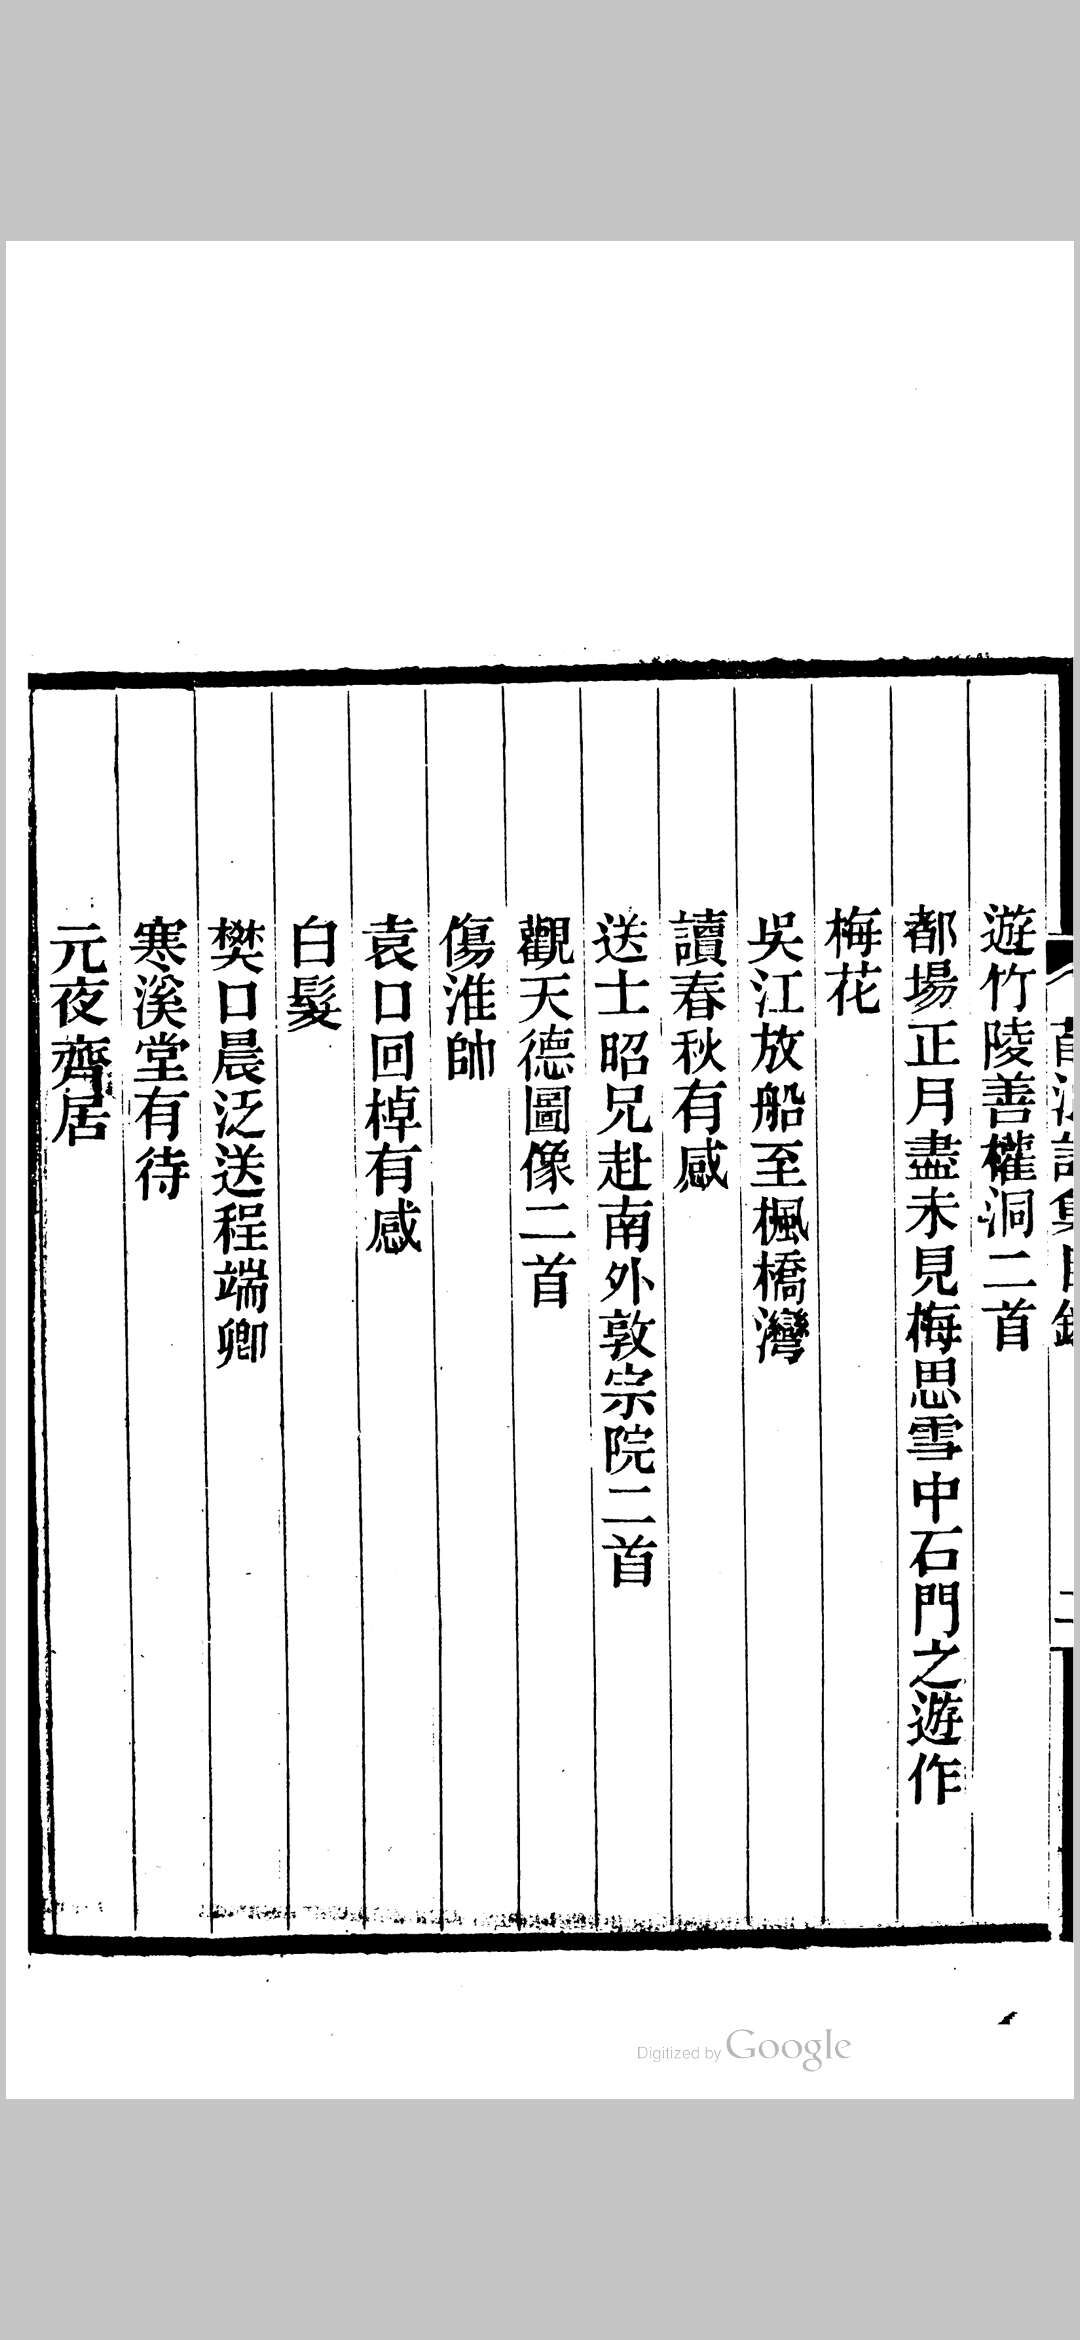 遊竹陵善權洞二首
都場正月盡未見梅思雪中石門之遊作
梅花
吳江放船至楓橋灣
讀春秋有感
送士昭兄赴南外敦宗院二首
觀天德圖像二首
傷淮帥
袁口回棹有感
白髮
樊口晨泛送程端卿
寒溪堂有待
元夜齊居
Digitized by Google